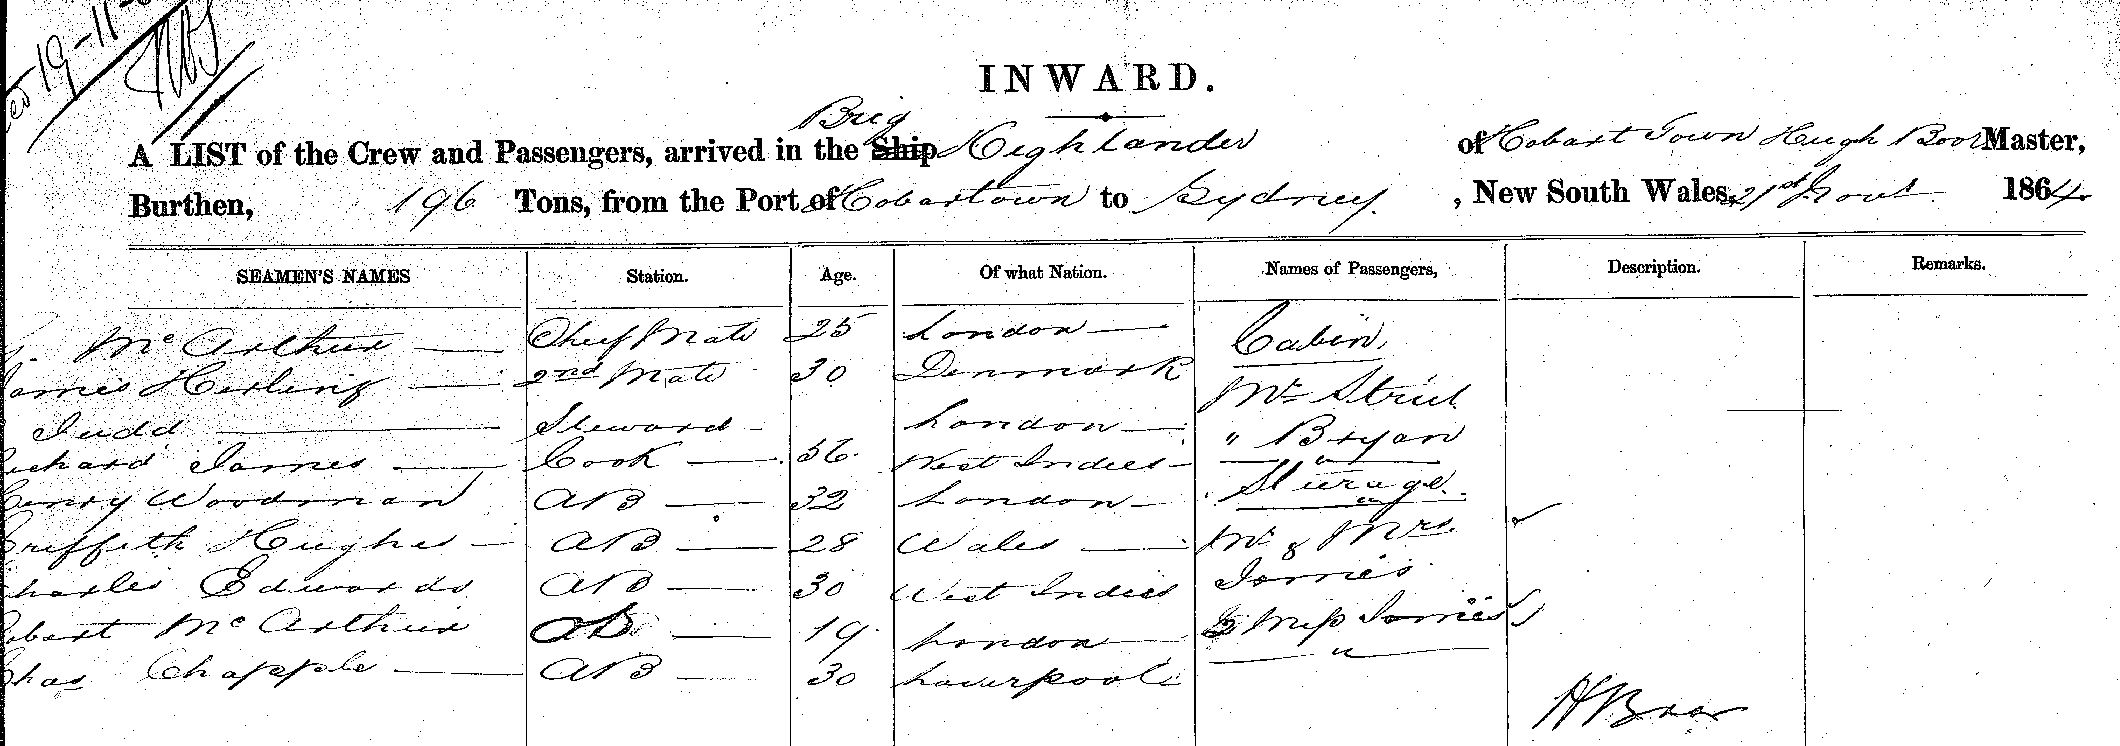 19-11-
INWARD.
A LIST of the Crew and Passengers, arrived in the Ship Brig Highlander of Hobart Town Hugh Boor Master,
Burthen, 196 Tons, from the Port of Hobartown to Sydney. , New South Wales, 21st 1864
SEAMEN'S NAMES Station. Age. Of what Nation. Names of Passengers, Description. Remarks.
McArthur Chief Mate 25 London Cabin,
James 2nd Mate 30 Denmark Mr
Judd Steward London " Bryan
Richard James Cook 36 West Indies
Henry Woodman AB 32 London
Griffith Hughes AB 28 Wales Mr & Mrs
Charles Edwards AB 30 West Indies
Robert McArthur AB 19 London 2 Miss
Chas Chapple AB 30 Liverpool
H Boor